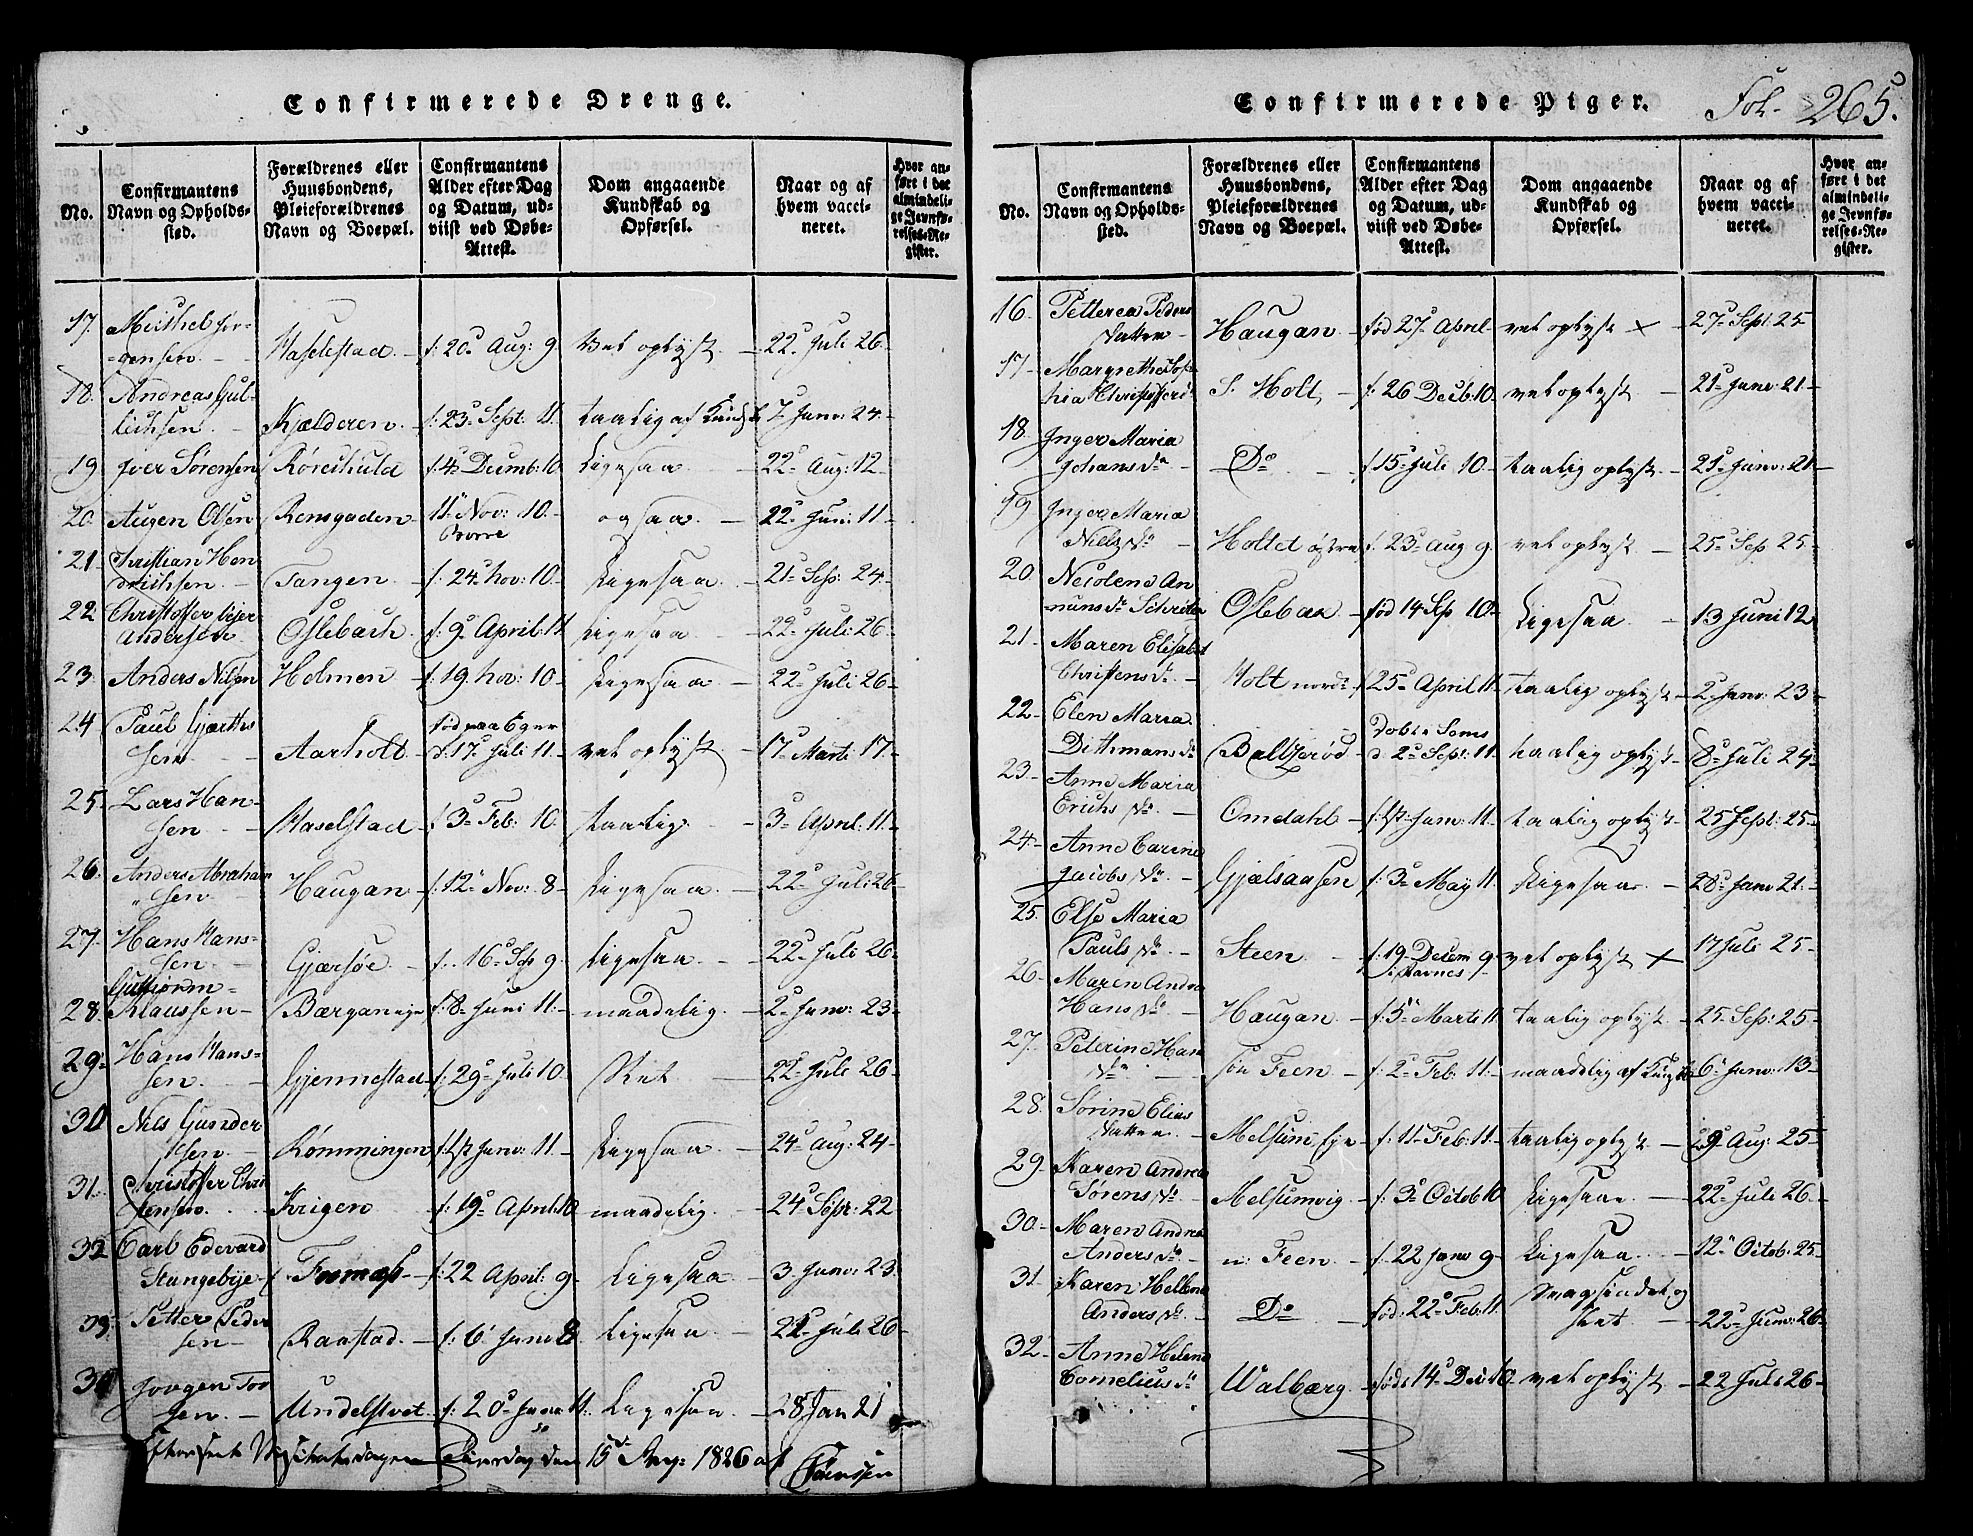 Confirmerede Drenge.
No.
Confirmantens
Navn og Opholds-
sted.
Forældrenes eller
Huusbondens,
Pleieforældrenes
Navn og Boepæl.
Confirmantens
Alder efter Dag
og Datum, ud-
viist ved Døbe-
Attest.
Dom angaaende
Kundskab og
Opførsel.
Naar og af
hvem vacci-
neret.
Hvor an-
ført i det
almindeli-
ge Jevnfø-
relses-Re-
gister.
17. Michel Jør-
gensen - Haselestad - f. 20 Aug: 9 Vel oplyst - 22 Juli 26-
18. Andreas Gul-
lichsen - Kjælderen - f: 23 Sept: 11 taalig af Kundsk 7 Janv: 24-
19 Iver Sørensen Røreskuld f. 4 Decemb: 10 Ligesaa - 22 Aug: 12-
20. Augen Olsen Rensgaden 11 Nov: 10- ogsaa - 22 Juni: 11-
Borre
21 Christian Hen
drichsen - Tangen - f. 24 nov: 10- Ligesaa - 21 Sep: 24-
22 Christoffer
Andersen Oslebach f. 9 April: 11 Ligesaa - 22 Juli: 26-
23. Anders Nilsen Holmen - f. 19. nov: 10- Ligesaa - 22 Juli: 26-
24 Paul Gjærths
sen - Aarholt - født paa Eger
d. 17 Juli 11- vel oplyst - 17 Marti 17-
25. Lars Han-
sen - Haselstad - f 3 Feb: 10. taalig - 3 April: 11-
26. Anders Abraham
sen - Haugan - f. 12 Nov: 8- Ligesaa - 22 Juli 26-
27. Hans Hans-
sen - Gjærsøe - f. 16 Sep 9- Ligesaa - 22 Juli 26-
Guttorm
28. Klaussen - Bærgan eje f. 8 Juni 11- maadelig - 2 Janv: 23-
29- Hans Hans-
sen - Gjennestad f. 29 Juli 10- Slet - 22 Juli 26-
30 Nils Gunder
sen - Rømmingen f. 1st Janv: 11- Ligesaa - 24 Aug: 24-
31. Christoffer Chri
stensen - Krigen f. 19 April: 10 maadelig - 24 Sept: 22-
32 Carl Edevard
Stangebye - Fosnæs - f: 22 April: 9- Ligesaa - 3. Janv: 23
33. Petter Peder
sen - Raastad - f. 6 Janv 8 Ligesaa - 22 Juli 26-
34 Jørgen Tor
sen. - Undelstvet f. 20 Janv 11. Ligesaa - 28 Jan 21
15 1826 af
Confirmerede Piger. Fol. 265.
No.
Confirmantens
Navn og Opholds-
sted.
Forældrenes eller
Huusbondens,
Pleieforældrenes
Navn og Boepæl.
Confirmantens
Alder efter Dag
og Datum, ud-
viist ved Døbe-
Attest.
Dom angaaende
Kundskab og
Opførsel.
Naar og af
hvem vacci-
neret.
Hvor an-
ført i det
almindeli-
ge Jevnfø-
relses-Re-
gister.
16- Petterea Peders
datter - Haugan - fød 27 April - vel oplyst × - 27 Sept 25-
17- Margrethe Sop
hia Christofferd S. Holt - f. 26 Decb: 10 vel oplyst - 21 Janv: 21-
18. Inger Maria
Johansdr - Do - f 15 Juli 10- taalig oplyst - 21 Janv: 21-
19 Inger Maria
Nielsdr - Holtet østre f. 23 Aug 9. vel oplyst - 25 Sep 25-
20 Necolene An
nunsdr Oslebak - fød 14 Sep 10- Ligesaa - 13 Juni 12
21- Maren Elisabet
Christensdr - Holt nord f 25 April 11 taalig oplyst - 2 Janv: 23-
22- Elen Maria
Dithmansdr Baltzerød - Døbt i Sems
d. 2 Sept: 11 taalig oplyst - 8 Juli 24-
23- Anne Maria
Erichsdr - Omdahl f. 1st Janv: 11- taalig oplyst - 25 Sept: 25-
24- Anne Carine
Jacobsdr - Gjælsaasen f: 3 May 11. Ligesaa - 28 Janv 21-
25. Else Maria
Paulsdr - Steen - f. 19 Decem 9- vel oplyst × 17 Juli 25-
26- Maren Andrea
Hansdr - Haugan - f: 5 Marti 11 taalig oplyst - 25 Sep: 25-
27- Peterine Han
dr - søn Feen - f: 2 Feb: 11- maadelig af Kundsk 6 Janv: 13-
28. Sørine Elias
datter - Melsum eje - f: 11 Feb: 11- taalig oplyst - 29 Aug: 25-
29- Karen Andrea
Sørensdr - Melsumvig - f. 3 Octob 10 Ligesaa - 22 Juli 26-
30- Maren Andrea
Andersdr - n: Feen - f. 22 Janv 9- Ligesaa - 12 Octob: 25-
31- Karen Hellene
Andersdr - Do - fød: 22 Feb: 11 svagsindet og
slet - 22 Janv: 26-
32- Anne Helene
Corneliusdr Walbærg - fød 14 Dec 10- vel oplyst - 22 Juli 26-